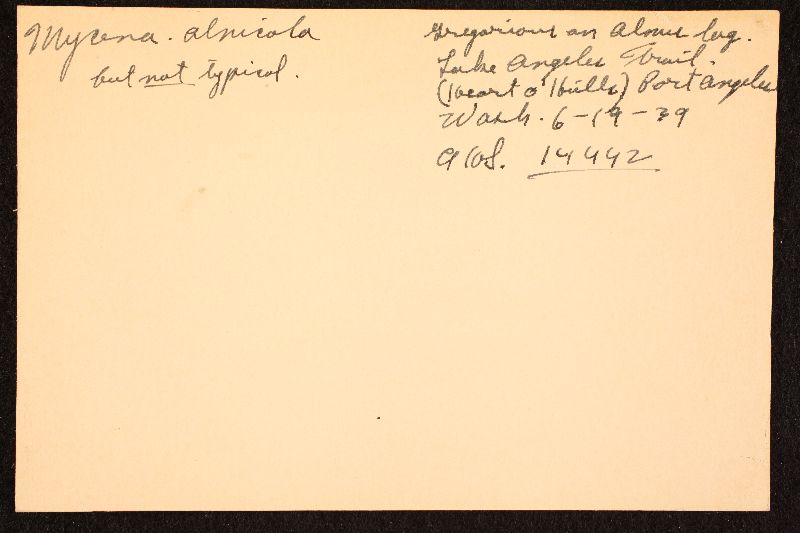 Mycena. alnicola
but not typical.
gregarious on Alnus log.
Lake Angeles Trail.
(Heart o' Hills) Port Angeles
Wash. 6-19-39
AHS. 14442